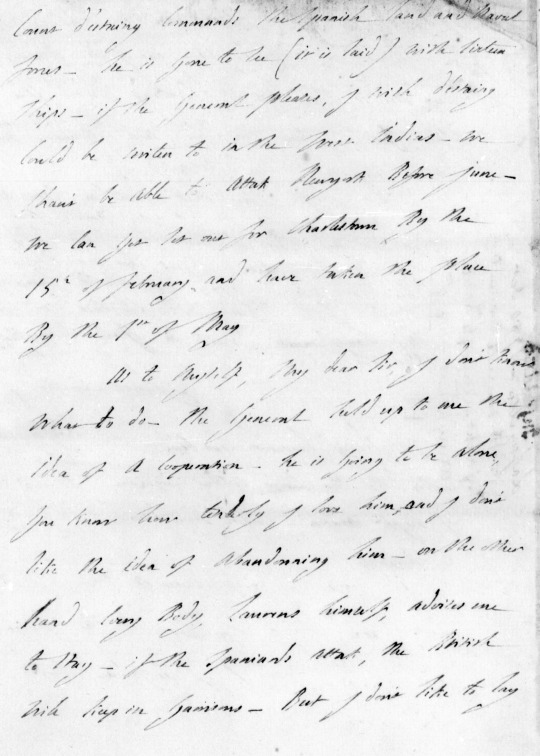 Count d'estaing Commands the Spanish land and Naval
forces – he is gone to be (it is said) with sixteen
ships – if the General pleases, I wish d'estaing
Could be written to in the West indias – we
shan't be Able to Attak Newyork Before june –
We Can yet set out for Charlestown By the
15th of february and have taken the place
By the 1st of May
As to Myself, My dear Sir, I don't know
What to do – the General held up to me the
idea of A Cooperation – he is going to be Alone,
you know how tenderly I love him, and I don't
like the idea of Abandonning him – on the other
hand every Body, Laurens himself, advises me
to stay – if the Spaniards attak, the British
Will keep in Garrisons – But I don't like to lay